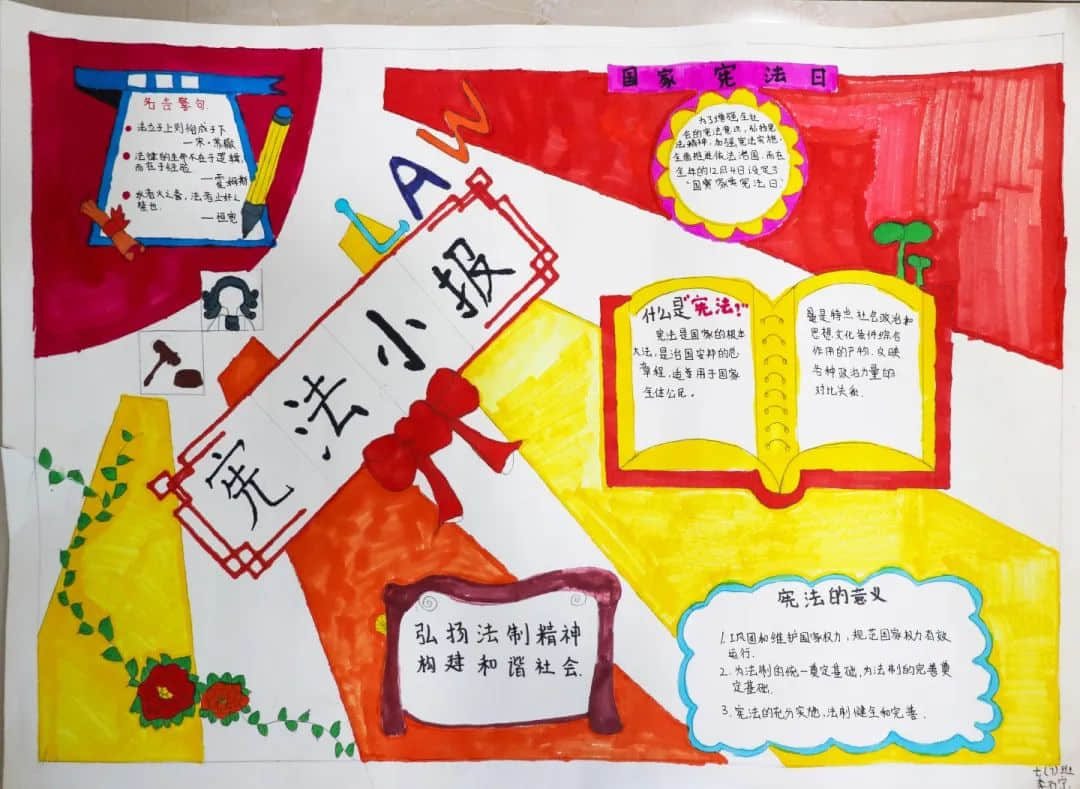 名言警句
法立于上则俗成于下
—宋·苏辙
法律的生命不在于逻辑,
而在于经验
—霍姆斯
水者火之备, 法者止奸之
禁也.
—桓宽
LAW
宪法小报
国家宪法日
为了增强全社
会的宪法意识, 弘扬宪
法精神, 加强宪法实施,
全面推进依法治国, 而在
全年的12月4日设定了
"国家宪法日".
什么是"宪法?"
宪法是国家的根本
大法, 是治国安邦的总
章程, 适用于国家
全体公民。
是特定社会政治和
思想文化条件综合
作用的产物, 反映
各种政治力量的
对比关系.
弘扬法制精神
构建和谐社会.
宪法的意义
1. 巩固和维护国家权力, 规范国家权力有效
运行.
2. 为法制的统一奠定基础, 为法制的完善奠
定基础.
3. 宪法的充分实施, 法制健全和完善.
七(7)班